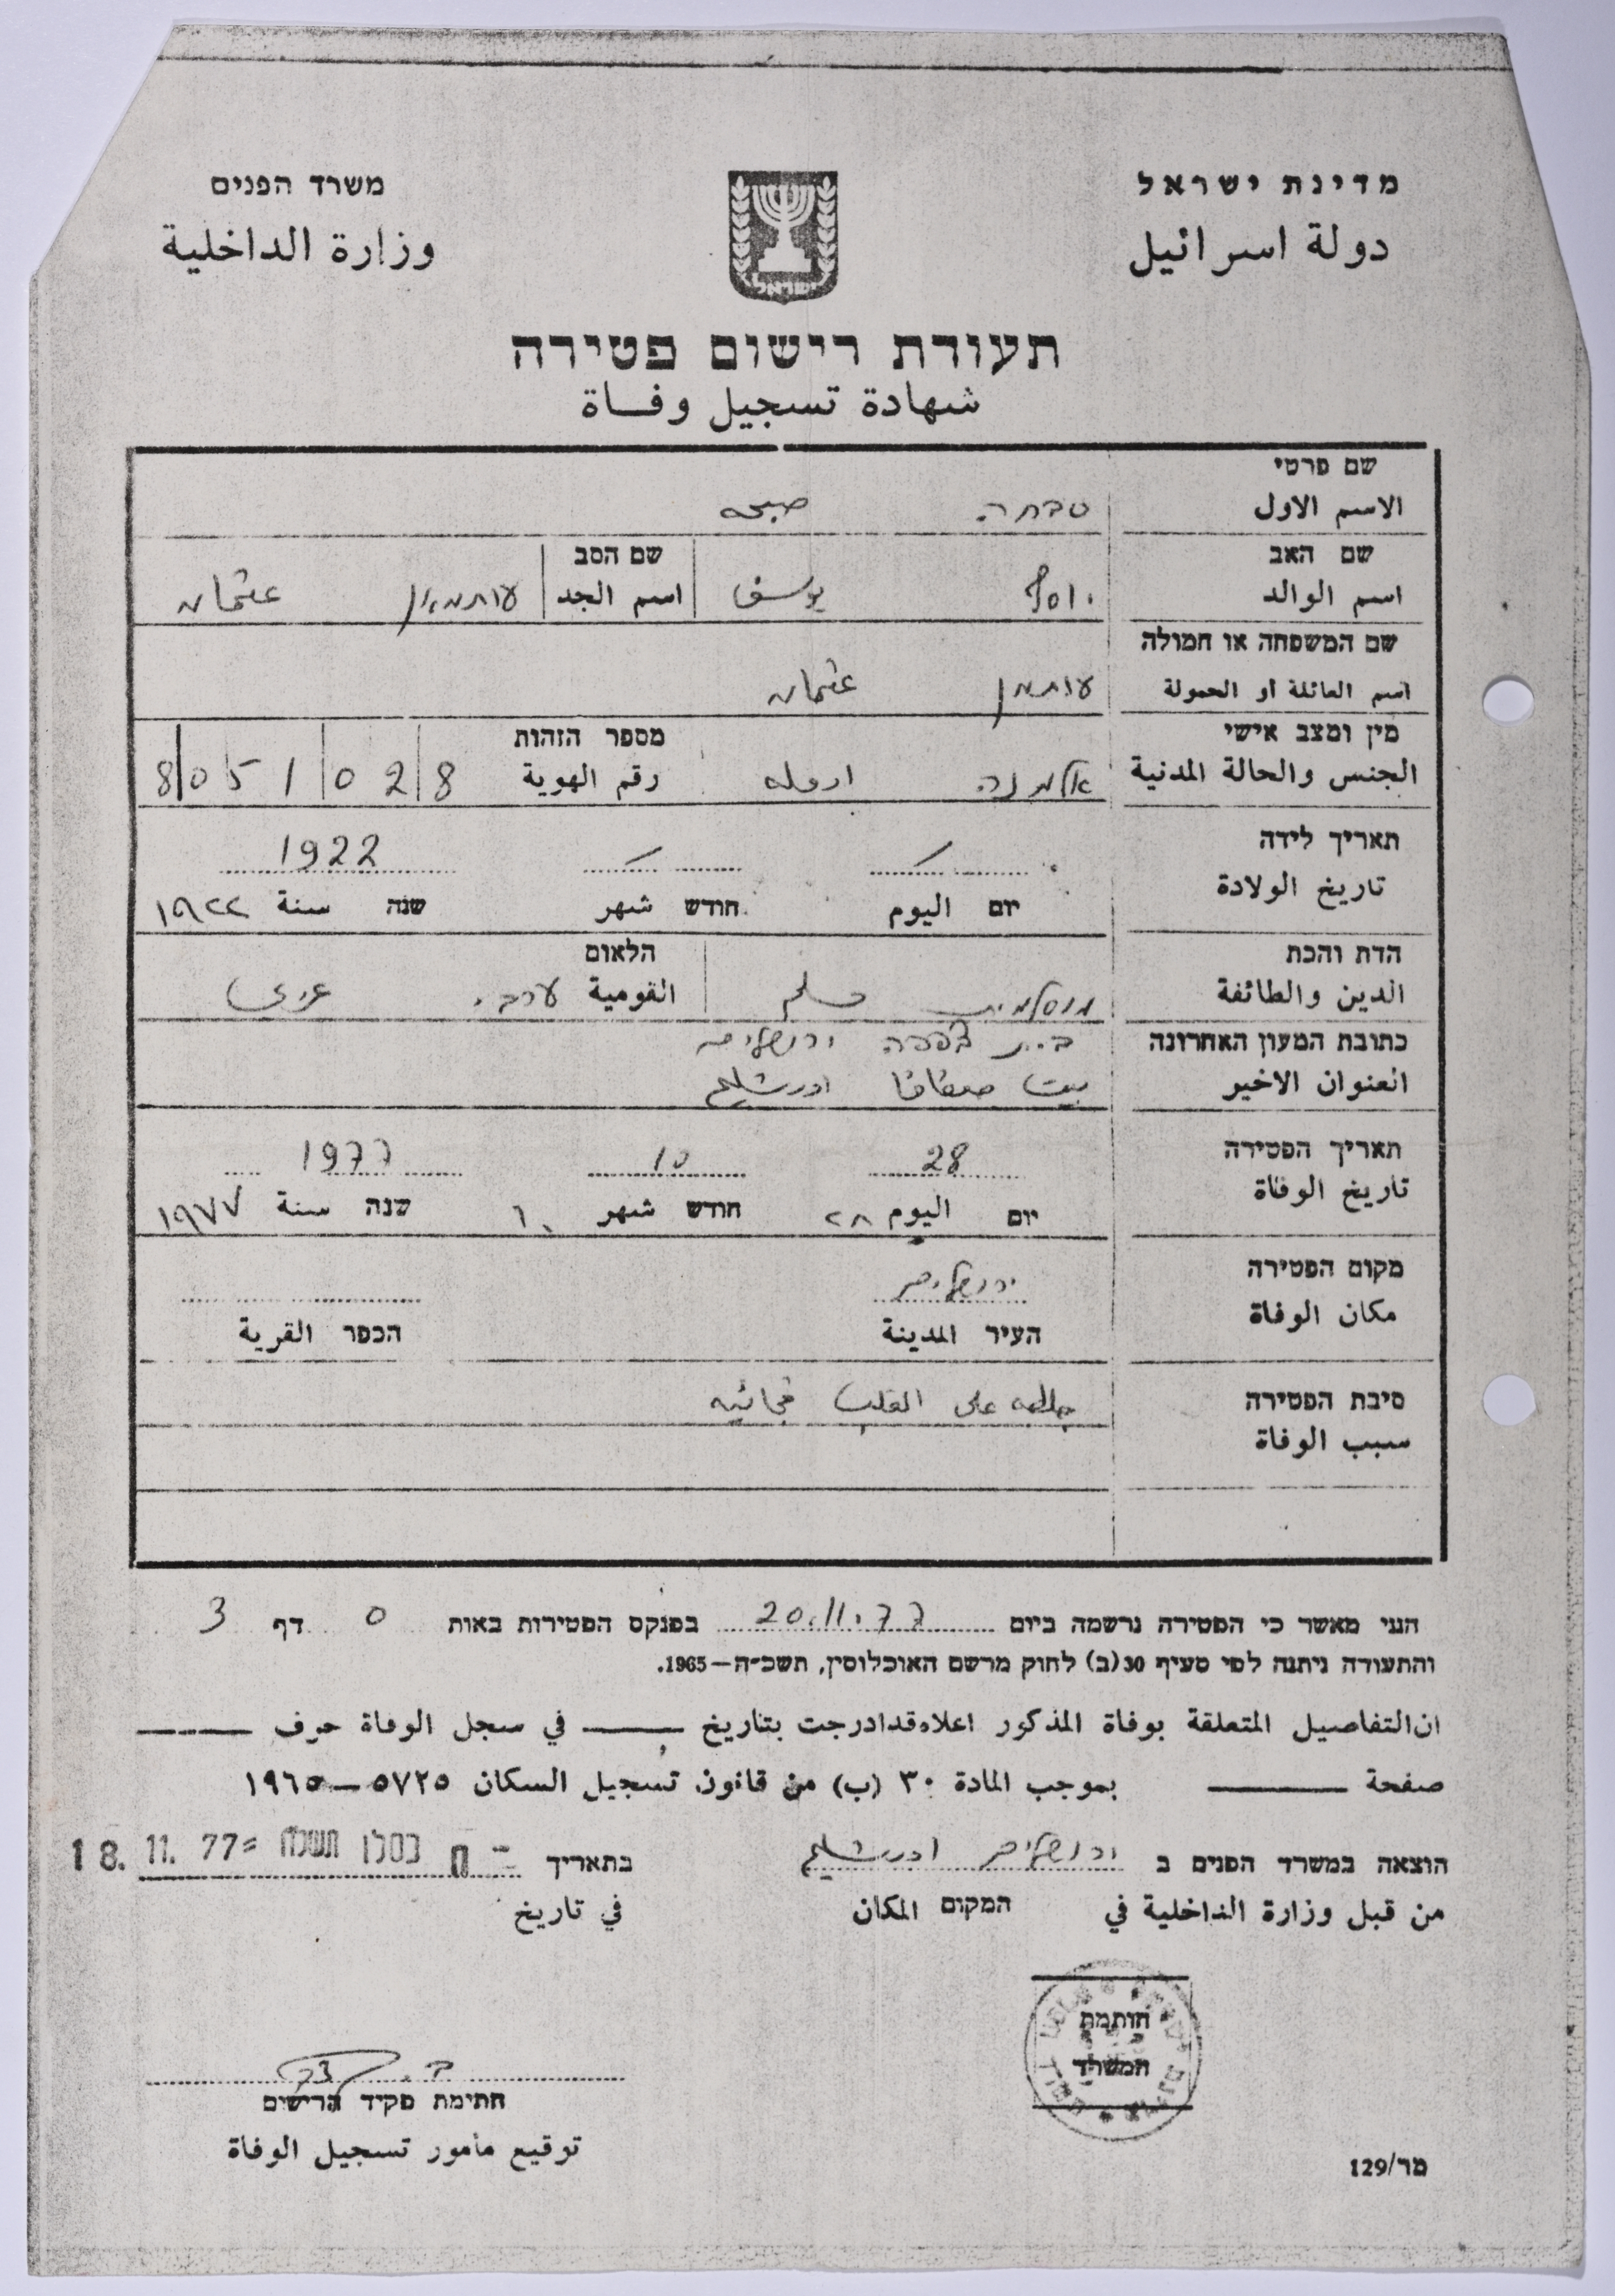 מדינת ישראל
משרד הפנים
دولة اسرائيل
وزارة الداخلية
ישראל
תעודת רישום פטירה
شهادة تسجيل وفاة
שם פרטי
الاسم الاول סבחה صبحه
שם האב שם הסב
اسم الوالد יוסף يوسف اسم الجد עותמאן عثمان
שם המשפחה או חמולה
اسم العائلة او الحمولة עותמן عثمان
מין ומצב אישי מספר הזהות
الجنس والحالة المدنية אלמנה ارمله رقم الهوية 8 0 5 1 0 2 8
תאריך לידה 1922
تاريخ الولادة
יום اليوم חודש شهر שנה سنة ١٩٢٢
הדת והכת הלאום
الدين والطائفة מוסלמית مسلم القومية ערבי عربي
כתובת המעון האחרונה בית צפפה ירושלים
العنوان الاخير بيت صفافا اورشليم
תאריך הפטירה 28 10 1977
تاريخ الوفاة
יום اليوم ٢٨ חודש شهر ١٠ שנה سنة ١٩٧٧
מקום הפטירה ירושלים
مكان الوفاة
העיר المدينة הכפר القرية
סיבת הפטירה جلطه على القلب فجائيه
سبب الوفاة
הנני מאשר כי הפטירה נרשמה ביום 20.11.77 בפנקס הפטירות באות ס דף 3
והתעודה ניתנה לפי סעיף 30(ב) לחוק מרשם האוכלוסין, תשכ״ה—1965.
ان التفاصيل المتعلقة بوفاة المذكور اعلاه قد ادرجت بتاريخ في سجل الوفاة حرف
صفحة بموجب المادة ٣٠ (ب) من قانون تسجيل السكان ٥٧٢٥—١٩٦٥
הוצאה במשרד הפנים ב ירושלים اورشليم בתאריך ח כסלו תשל״ח 18.11.77
من قبل وزارة الداخلية في המקום المكان في تاريخ
חותמת
המשרד
חתימת פקיד הרישום
توقيع مأمور تسجيل الوفاة
מר/129